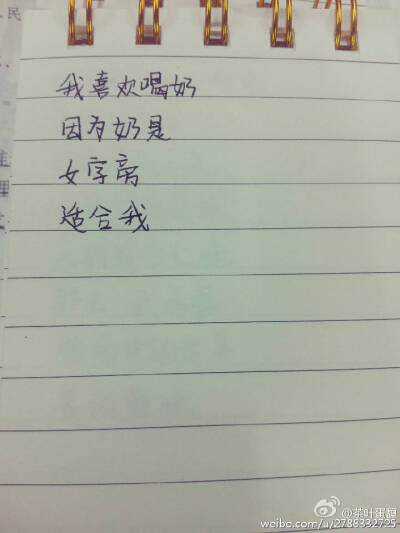 民
我喜欢喝奶
因为奶是
女字旁
适合我
理
@茶叶蛋馥
weibo.com/u/2788332725